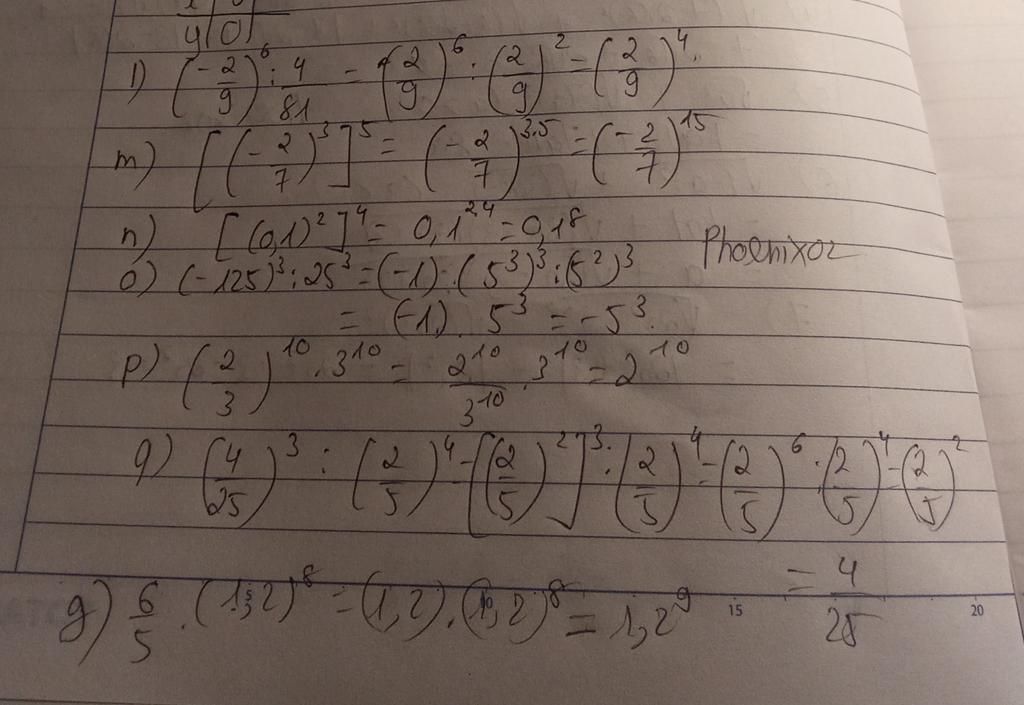 y | 0 |
l) (-2/9)^6 : 4/81 = (2/9)^6 : (2/9)^2 = (2/9)^4.
m) [(-2/7)^3]^5 = (-2/7)^3.5 = (-2/7)^15
n) [(0,1)^2]^4 = 0,1^2.4 = 0,1^8
Phoenixor
o) (-125)^3 : 25^3 = (-1) . (5^3)^3 : (5^2)^3
= (-1) . 5^3 = -5^3.
p) (2/3)^10 . 3^10 = 2^10/3^10 . 3^10 = 2^10
q) (4/25)^3 : (2/5)^4 = [(2/5)^2]^3 : (2/5)^4 = (2/5)^6 : (2/5)^4 = (2/5)^2
= 4/25
g) 6/5 . (1,2)^8 = (1,2) . (1,2)^8 = 1,2^9
5 10 15 20